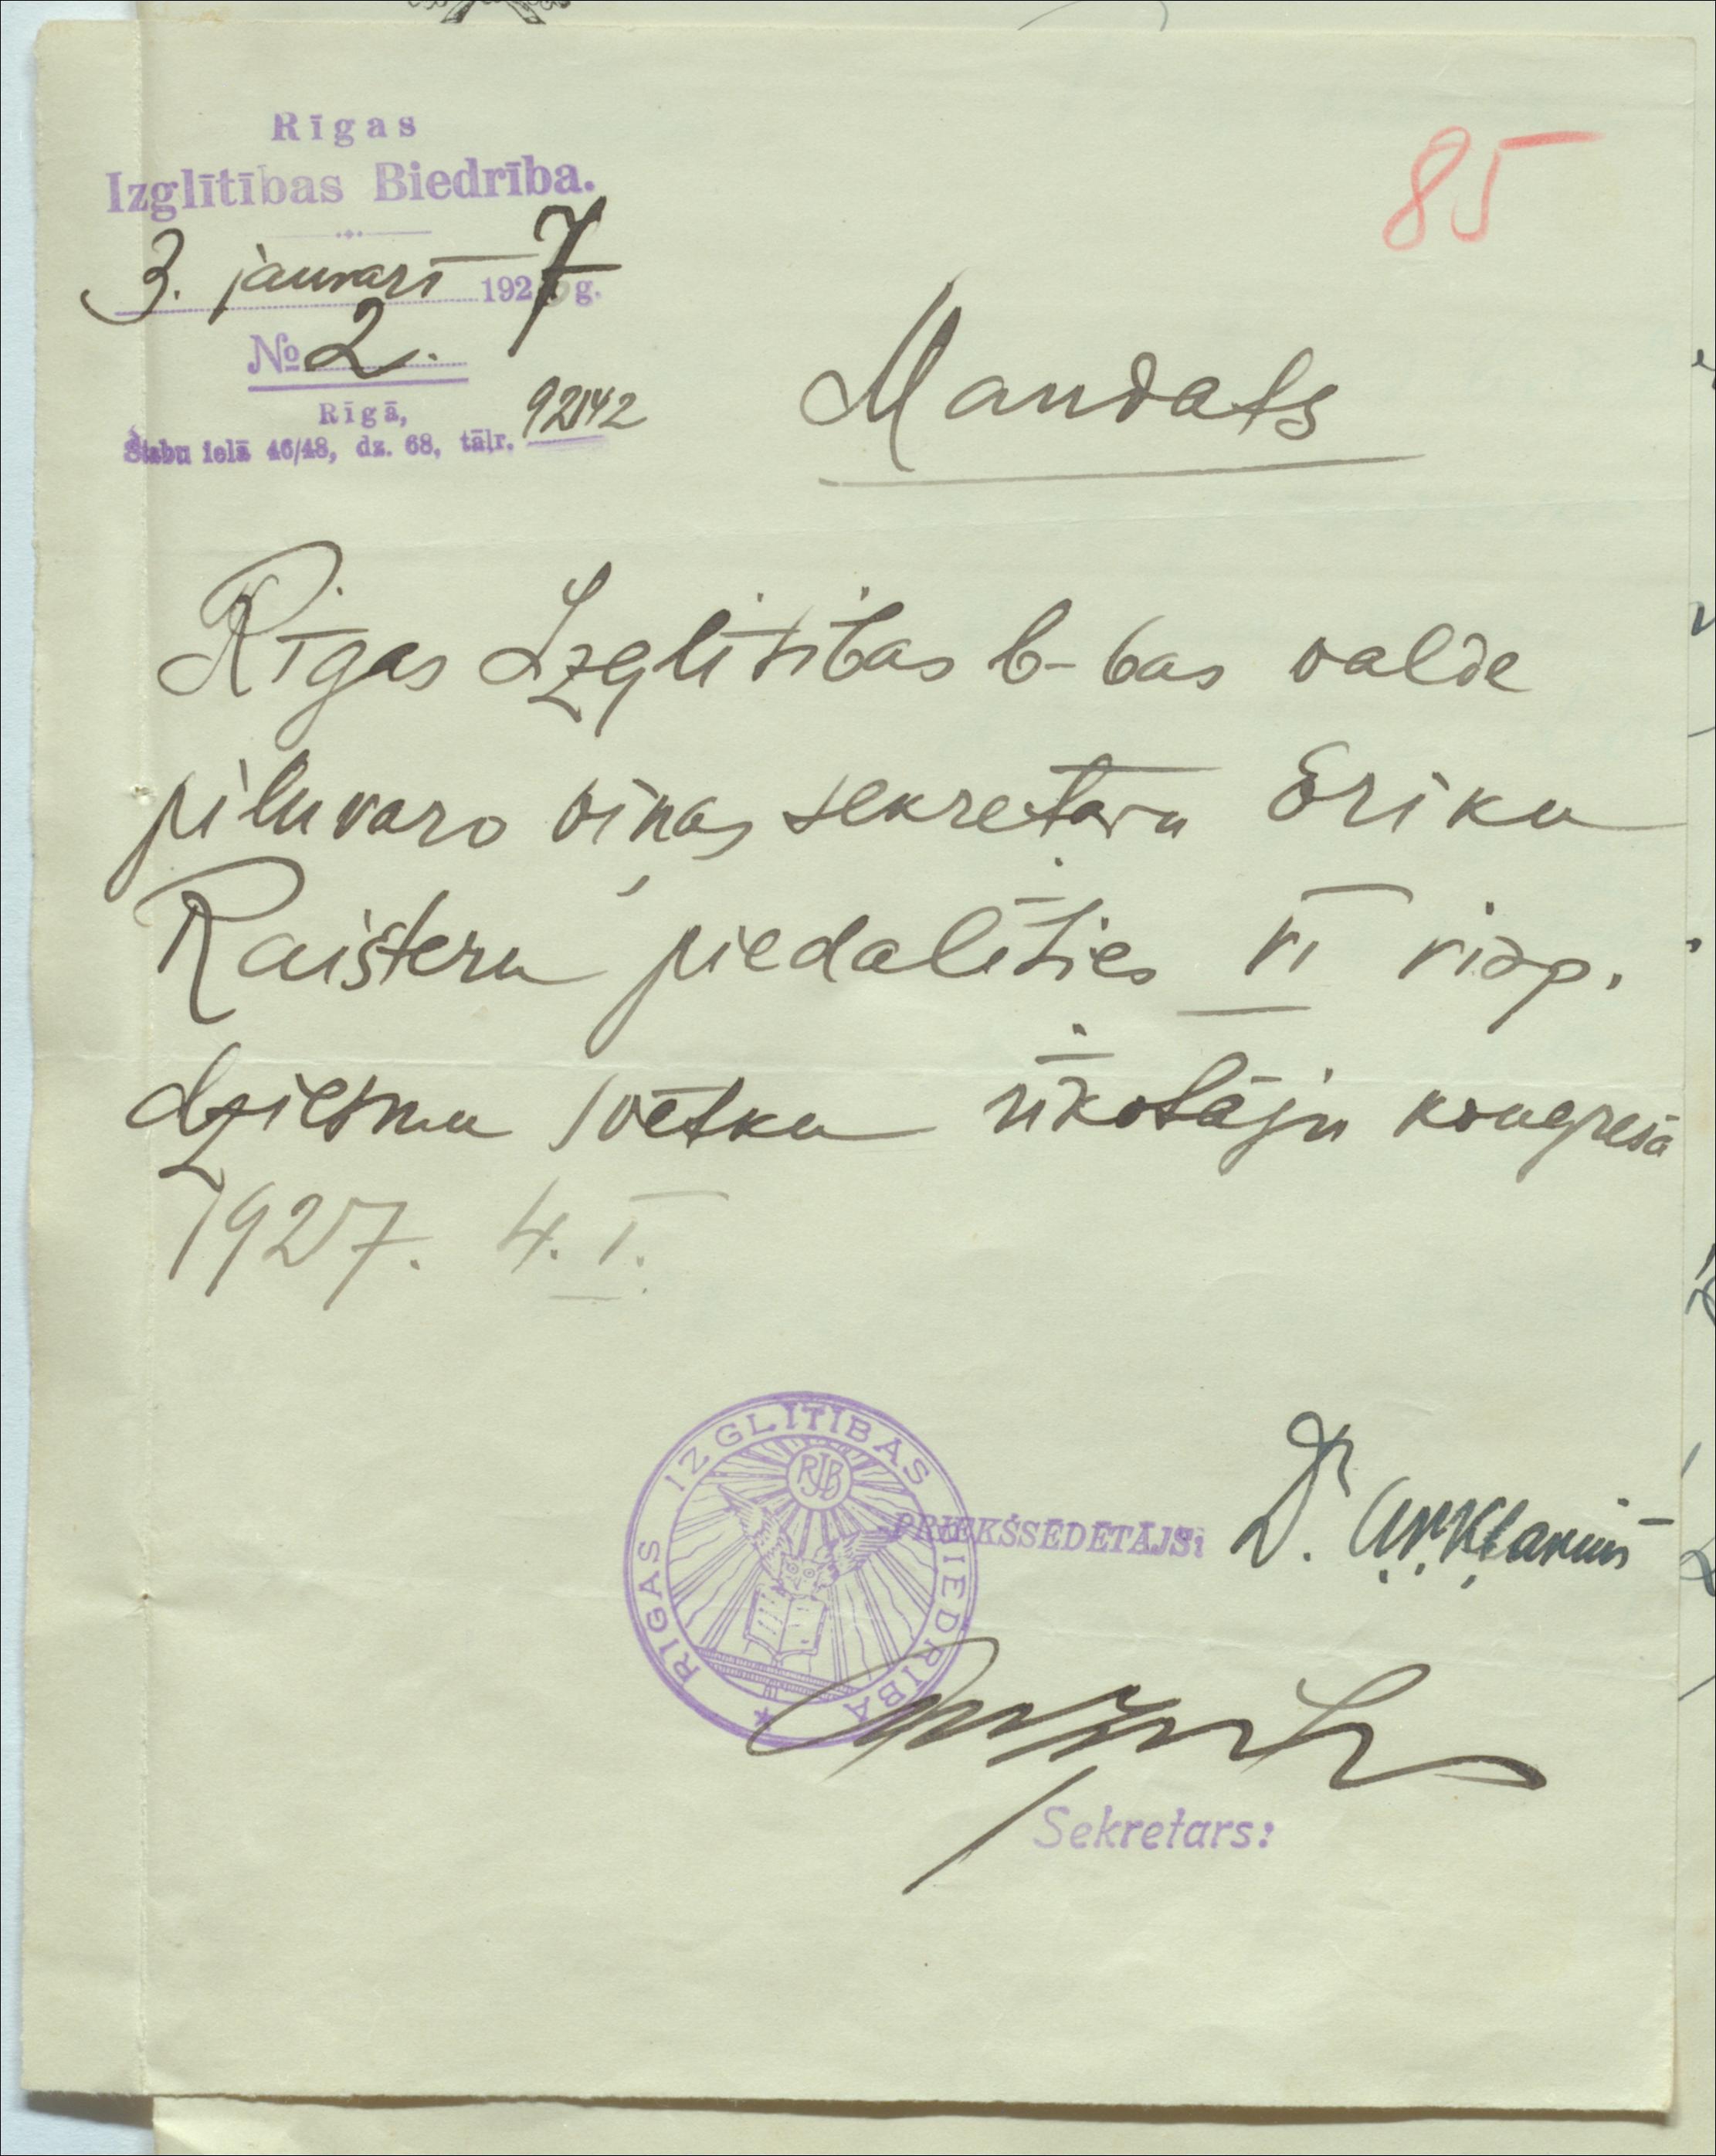 Rīgas
Izglītības Biedrība.
85
3. janvarī 1927 g.
№ 2.
Mandats
Rīgā,
Stabu ielā 46/48, dz. 68, tāļr. 92142
Rīgas Izglītības b-bas valde
pilnvaro viņas sekretaru Eriku
Raisteru piedalīties VI visp.
dziesmu svētku rīkotāju kongresā
1927. 4. I.
RĪGAS IZGLĪTĪBAS BIEDRĪBA
RJB
PRIEKŠSĒDĒTĀJS:
Dr.
Sekretars: